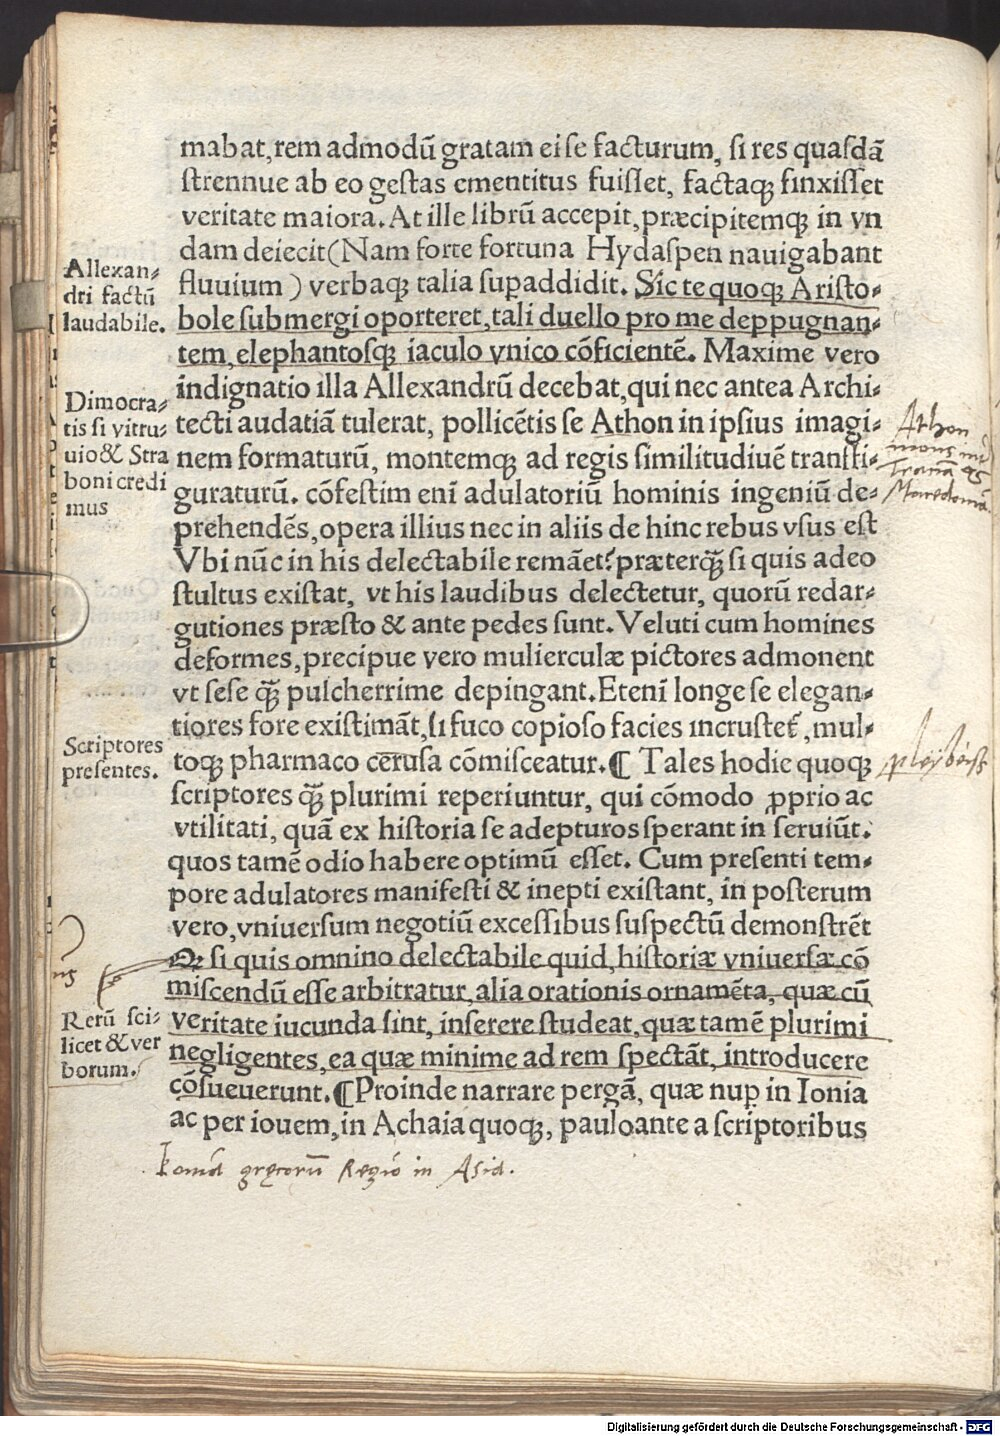 mabat, rem admodū gratam ei se facturum, si res quasdā
strennue ab eo gestas ementitus fuisset, factaq; finxisset
veritate maiora. At ille librū accepit, præcipitemq; in vn
dam deiecit (Nam forte fortuna Hydaspen nauigabant
fluuium) verbaq; talia suꝑaddidit. Sic te quoq; Aristo-
bole submergi oporteret, tali duello pro me deppugnan-
tem, elephantosq; iaculo vnico cōficientē. Maxime vero
indignatio illa Allexandrū decebat, qui nec antea Archi-
tecti audatiā tulerat, pollicētis se Athon in ipsius imagi-
nem formaturū, montemq; ad regis similitudiuē transfi-
guraturū. cōfestim enī adulatoriū hominis ingeniū de-
prehendēs, opera illius nec in aliis de hinc rebus vsus est
Vbi nūc in his delectabile remāet? præterq̄ȝ si quis adeo
stultus existat, vt his laudibus delectetur, quorū redar-
gutiones præsto & ante pedes sunt. Veluti cum homines
deformes, precipue vero mulierculæ pictores admonent
vt sese q̄ȝ pulcherrime depingant. Etenī longe se elegan-
tiores fore existimāt, si fuco copioso facies incrustet᷑, mul-
toq; pharmaco cerusa cōmisceatur. ¶ Tales hodie quoq;
scriptores q̄ȝ plurimi reperiuntur, qui cōmodo ꝓprio ac
vtilitati, quā ex historia se adepturos sperant in seruiūt.
quos tamē odio habere optimū esset. Cum presenti tem-
pore adulatores manifesti & inepti existant, in posterum
vero, vniuersum negotiū excessibus suspectū demonstrēt
Qꝛ si quis omnino delectabile quid, historiæ vniuersæ cō
miscendū esse arbitratur, alia orationis ornamēta, quæ cū
veritate iucunda sint, inserere studeat, quæ tamē plurimi
negligentes, ea quæ minime ad rem spectāt, introducere
cōsueuerunt. ¶ Proinde narrare pergā, quæ nuꝑ in Ionia
ac per iouem, in Achaia quoq;, pauloante a scriptoribus
Allexan-
dri factū
laudabile.
Dimocra-
tis si vitru-
uio & Stra
boni credi
mus
Scriptores
presentes.
Rerū sci-
licet & ver
borum.
Athon
mons
Macedoniā
Ioniā gręcorū Regio in Asia.
Digitalisierung gefördert durch die Deutsche Forschungsgemeinschaft - DFG